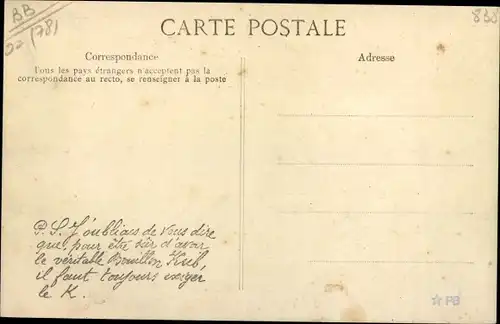 BB
02 (78)
838
CARTE POSTALE
Correspondance
Tous les pays étrangers n'acceptent pas la
correspondance au recto, se renseigner à la poste
Adresse
P.S. J'oubliais de vous dire
que, pour être sûr d'avoir
le véritable Bouillon Kub,
il faut toujours exiger
le K.
☆PB